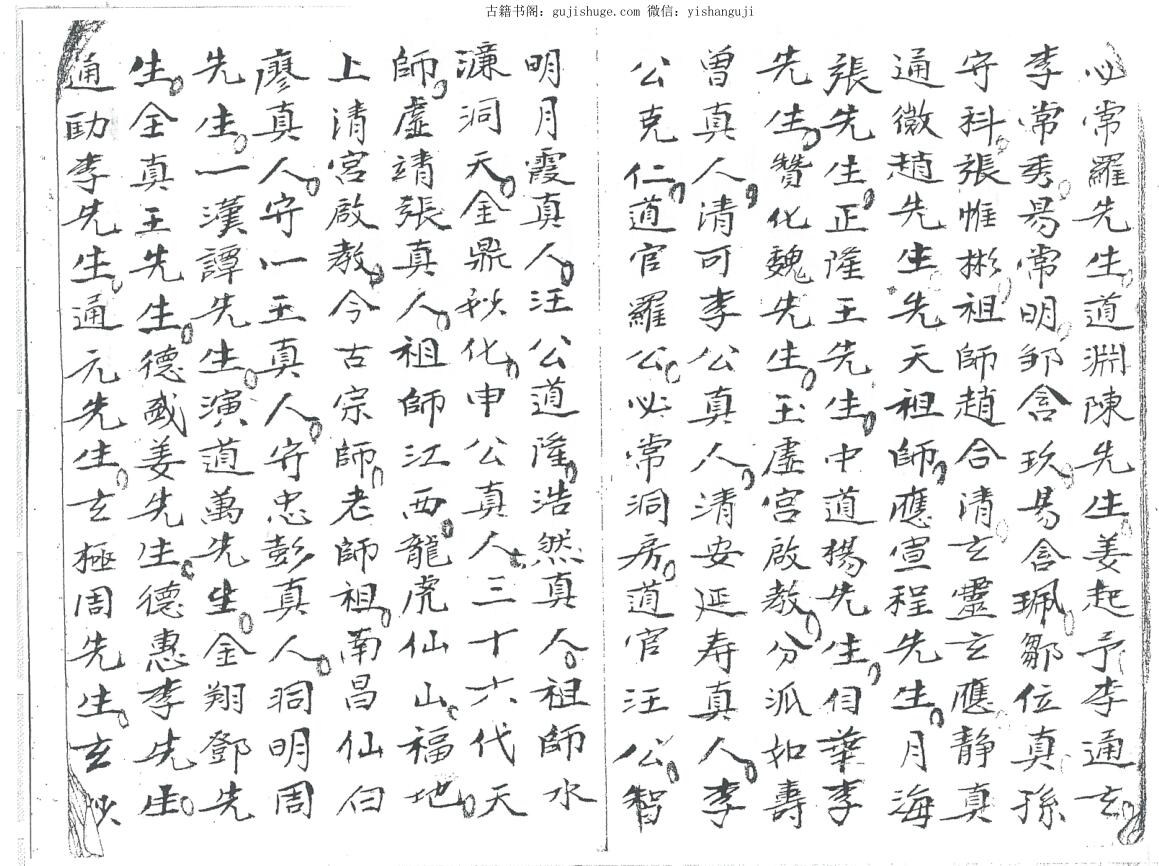 古籍书阁：gujishuge.com 微信：yishanguji
必常羅先生道淵陳先生姜起予李通玄
李常秀易常明邹含玖易含珮鄒位真孫
守科張惟彬祖師趙合清玄靈玄應静真
通徽趙先生先天祖師應宣程先生月海
張先生正隆王先生中道楊先生日華李
先生贊化魏先生玉虛宮啟教分派如壽
曾真人清可李公真人清安延寿真人李
公克仁道官羅公必常洞房道官汪公智
明月霞真人汪公道隆浩然真人祖師水
濂洞天金鼎妙化申公真人三十六代天
師虛靖張真人祖師江西龍虎仙山福地
上清宮啟教今古宗師老師祖南昌仙伯
廖真人守一王真人守忠彭真人洞明周
先生一漢譚先生演道萬先生金翔鄧先
生全真王先生德威姜先生德惠李先生
通勛李先生通元先生玄極周先生玄妙